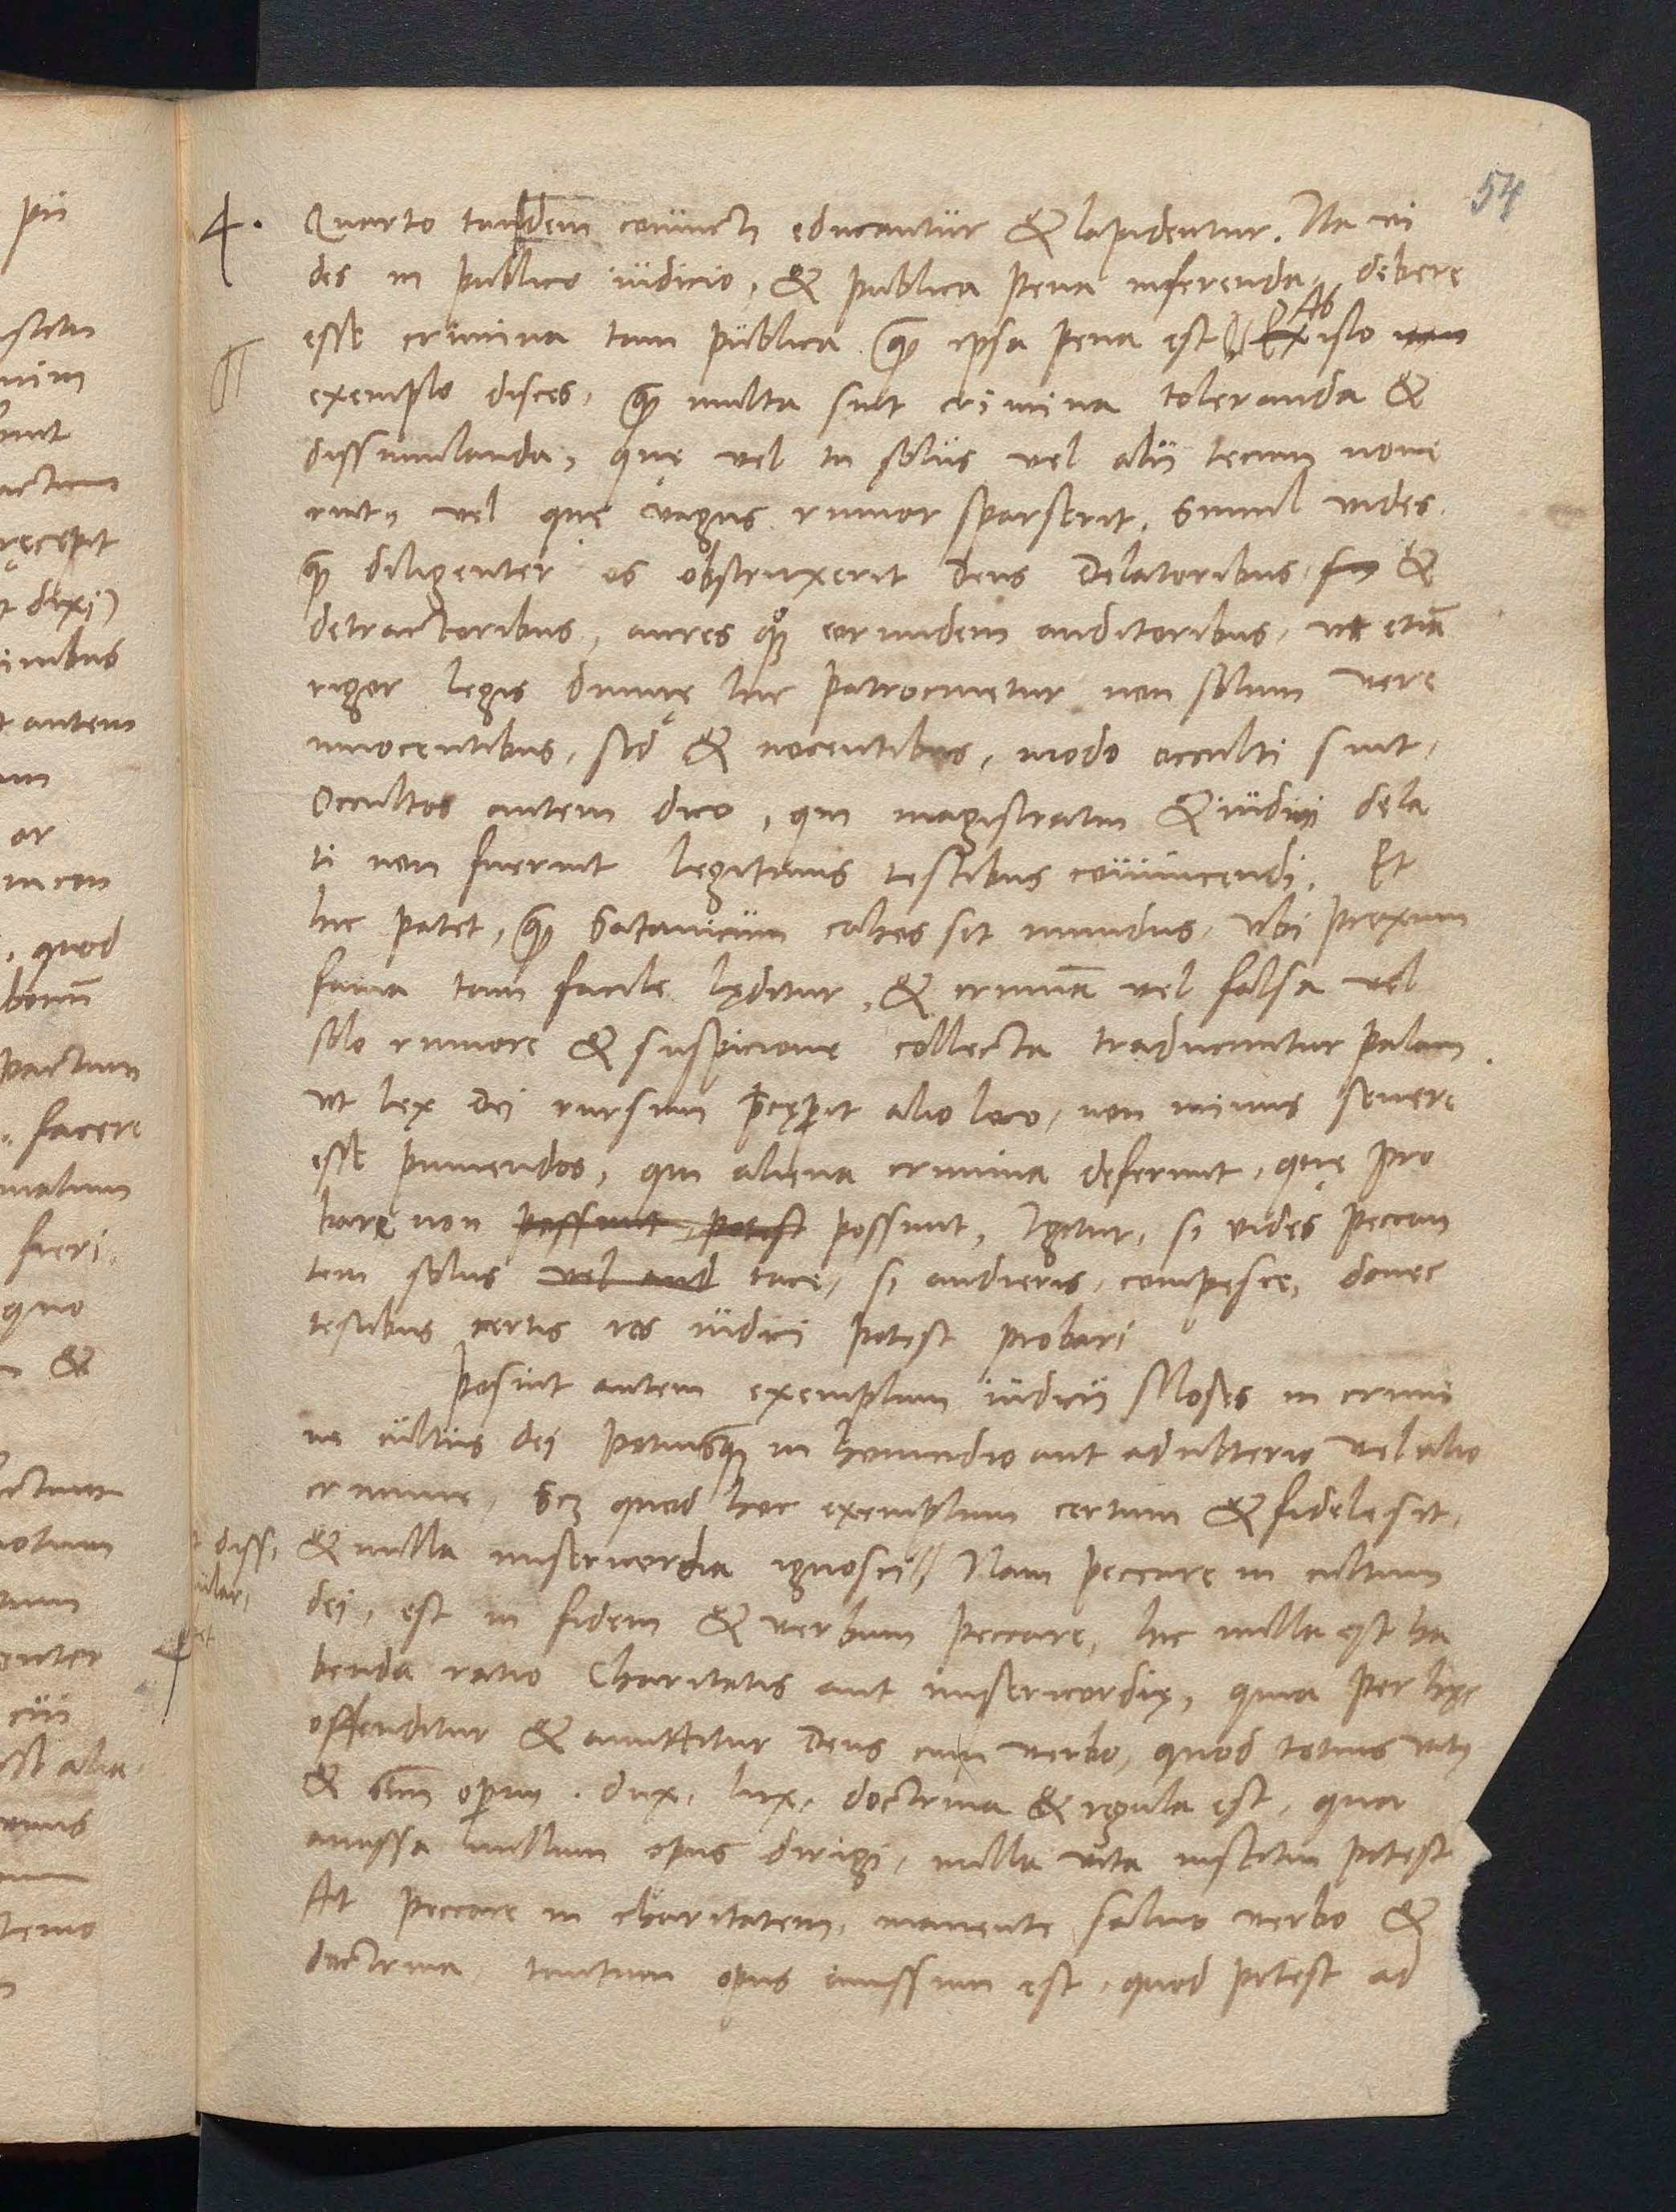 54
4. Quarto tandem conuicti educantur & lapidentur. Ita vi
des in publico iudicio, & publica pena inferenda, debere
esse crimina tam publica qȝ ipsa pena est Ab isto
exemplo disces, qȝ multa sint crimina toleranda &
dissimulanda, quę vel tu solus vel alii tecum noue
rint, vel quę vagus rumor sparserit, Simul vides,
qȝ diligenter os obstruxerit deus Delatoribus &
detractoribus, aures qȝ eorundem auditoribus, vt etiā
rigor legis diuinę hic patrocinetur non solum vere
innocentibus, sed & nocentibus, modo occulti sint,
Occultos autem dico, qui magistratui & iudici dela
ti non fuerint legitimis testibus conuincendi. Et
hic patet, qȝ Satanicum cahos sit mundus, vbi proximi
fama tam facile lęditur, & criminā vel falsa vel
solo rumore & suspicione collecta traducuntur palam.
vt lex Dei rursum p̄cępit alio loco, non minus seuere
esse puniendos, qui aliena crimina deferunt, quę pro
bare non possunt, potest possunt, Igitur, si vides peccan
tem solus vel aud tace, si audieris, compesce, donec
testibus certis res iudici potest probari
Posuit autem exemplum iudicii Moses in crimi
ne cultus dei potiusqȝ in homicidio aut adulterio vel alio
crimine, Scȝ quod hoc exemplum certum & fidele sit,
& nulla misericordia ignosci Nam peccare in cultum
dei, est in fidem & verbum peccare, hic nulla est ha
benda ratio Charitatis aut misericordię, quia per hęc
offenditur & amittitur Deus cum verbo, quod totius vitę
& om̄m operum. dux, lux, doctrina & regula est, qua
amissa nullum opus dirigi, nulla vita institui potest
At peccare in charitatem, manente saluo verbo &
doctrina, tantum opus amissum est, quod potest ad